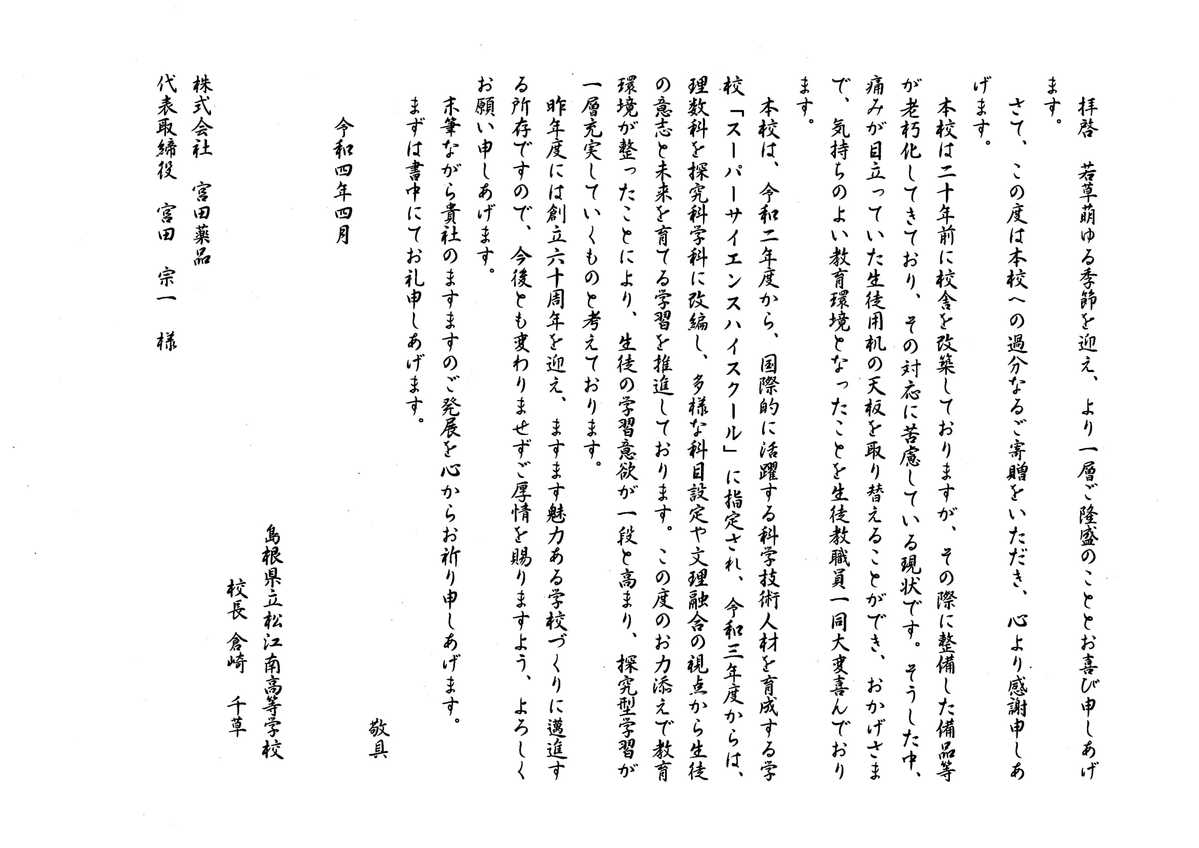 拝啓　若草萌ゆる季節を迎え、より一層ご隆盛のこととお喜び申しあげ
ます。
さて、この度は本校への過分なるご寄贈をいただき、心より感謝申しあ
げます。
本校は二十年前に校舎を改築しておりますが、その際に整備した備品等
が老朽化してきており、その対応に苦慮している現状です。そうした中、
痛みが目立っていた生徒用机の天板を取り替えることができ、おかげさま
で、気持ちのよい教育環境となったことを生徒教職員一同大変喜んでおり
ます。
本校は、令和二年度から、国際的に活躍する科学技術人材を育成する学
校「スーパーサイエンスハイスクール」に指定され、令和三年度からは、
理数科を探究科学科に改編し、多様な科目設定や文理融合の視点から生徒
の意志と未来を育てる学習を推進しております。この度のお力添えで教育
環境が整ったことにより、生徒の学習意欲が一段と高まり、探究型学習が
一層充実していくものと考えております。
昨年度には創立六十周年を迎え、ますます魅力ある学校づくりに邁進す
る所存ですので、今後とも変わりませずご厚情を賜りますよう、よろしく
お願い申しあげます。
末筆ながら貴社のますますのご発展を心からお祈り申しあげます。
まずは書中にてお礼申しあげます。
敬具
令和四年四月
島根県立松江南高等学校
校長　倉崎　千草
株式会社　宮田薬品
代表取締役　宮田　宗一　様